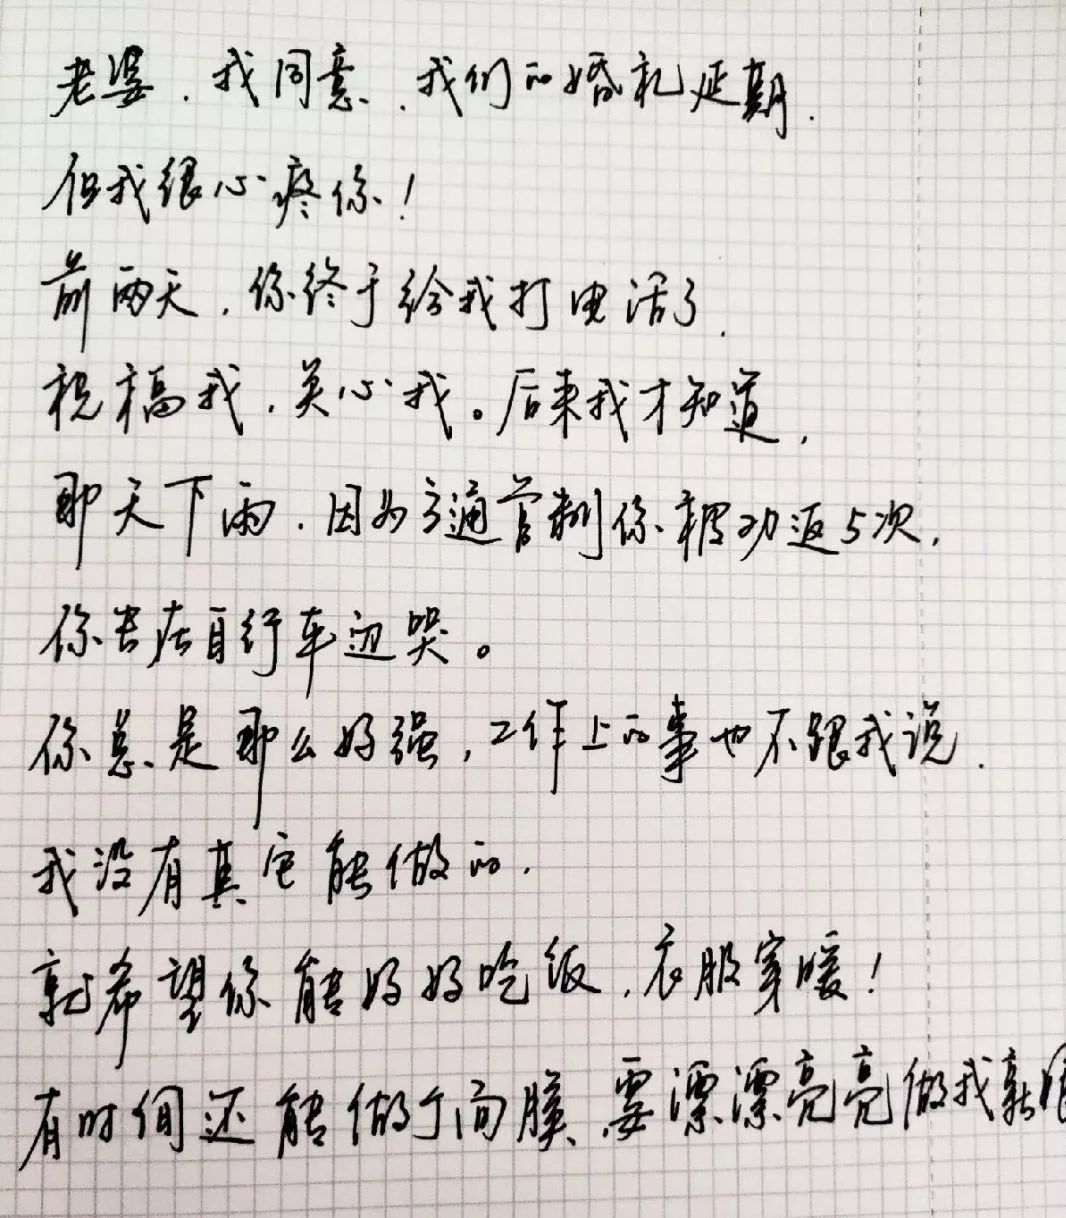 老婆，我同意，我们的婚礼延期，
但我很心疼你！
前两天，你终于给我打电话了，
祝福我，关心我。后来我才知道，
那天下雨，因为交通管制你被劝返5次，
你坐在自行车边哭。
你总是那么好强，工作上的事也不跟我说，
我没有其它能做的，
就希望你能好好吃饭，衣服穿暖！
有时间还能做个面膜，要漂漂亮亮做我新